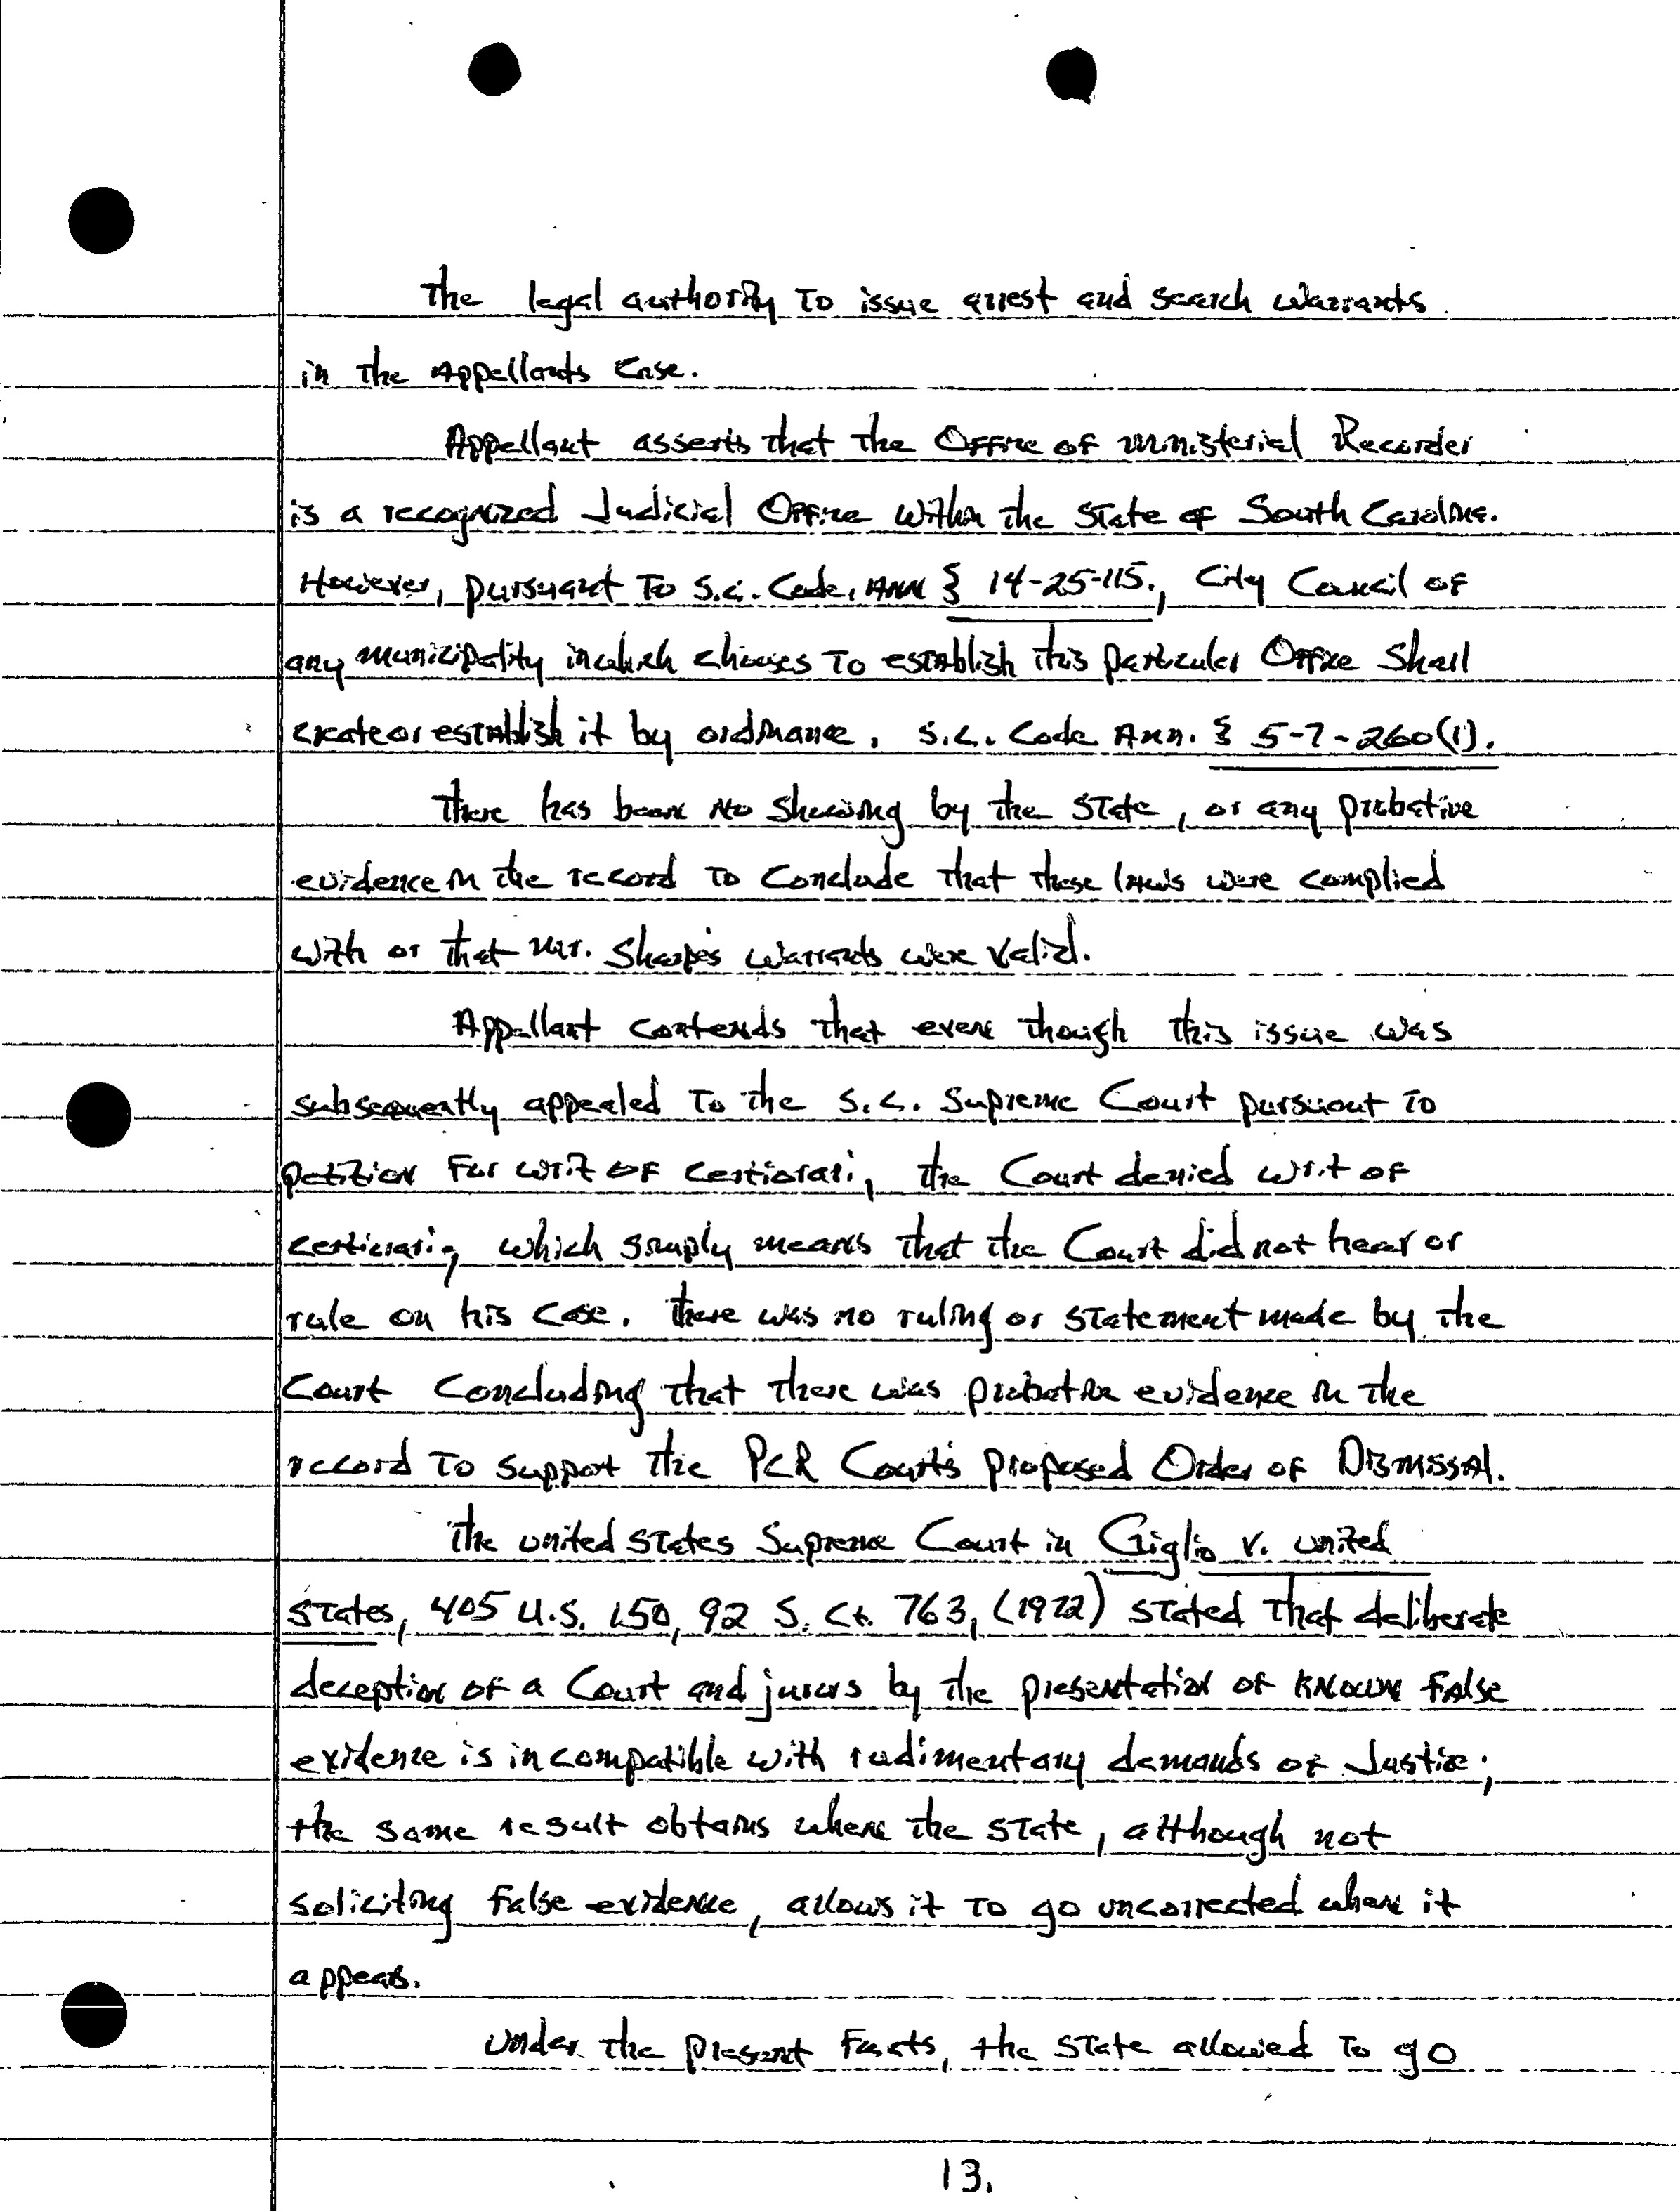 The legal authority To issue arrest and search warrants
in the Appellants Case.
Appellant asserts that the Office of ministerial Recorder
is a recognized Judicial Office within the State of South Carolina.
However, pursuant To S.C. Code. Ann § 14-25-115., City Council of
any municipality in which chooses To establish this particular Office Shall
create or establish it by ordinance, S.C. Code Ann. § 5-7-260(1).
There has been No Showing by the State, or any probative
evidence in the record To Conclude that these laws were complied
with or that Mr. Sharpe's warrants were valid.
Appellant contends that even though this issue was
subsequently appealed To the S.C. Supreme Court pursuant To
petition For writ of certiorari, the Court denied writ of
certiorari, which simply means that the Court did not hear or
rule on his case. There was no ruling or statement made by the
Court Concluding that there was probative evidence in the
record To support the PCR Court's proposed Order of Dismissal.
The united States Supreme Court in Giglio v. united
States, 405 U.S. 150, 92 S. Ct. 763, (1972) stated that deliberate
deception of a Court and jurors by the presentation of known False
evidence is incompatible with rudimentary demands of Justice;
the same result obtains when the State, although not
soliciting False evidence, allows it To go uncorrected when it
appears.
Under the present Facts, the State allowed To go
13.